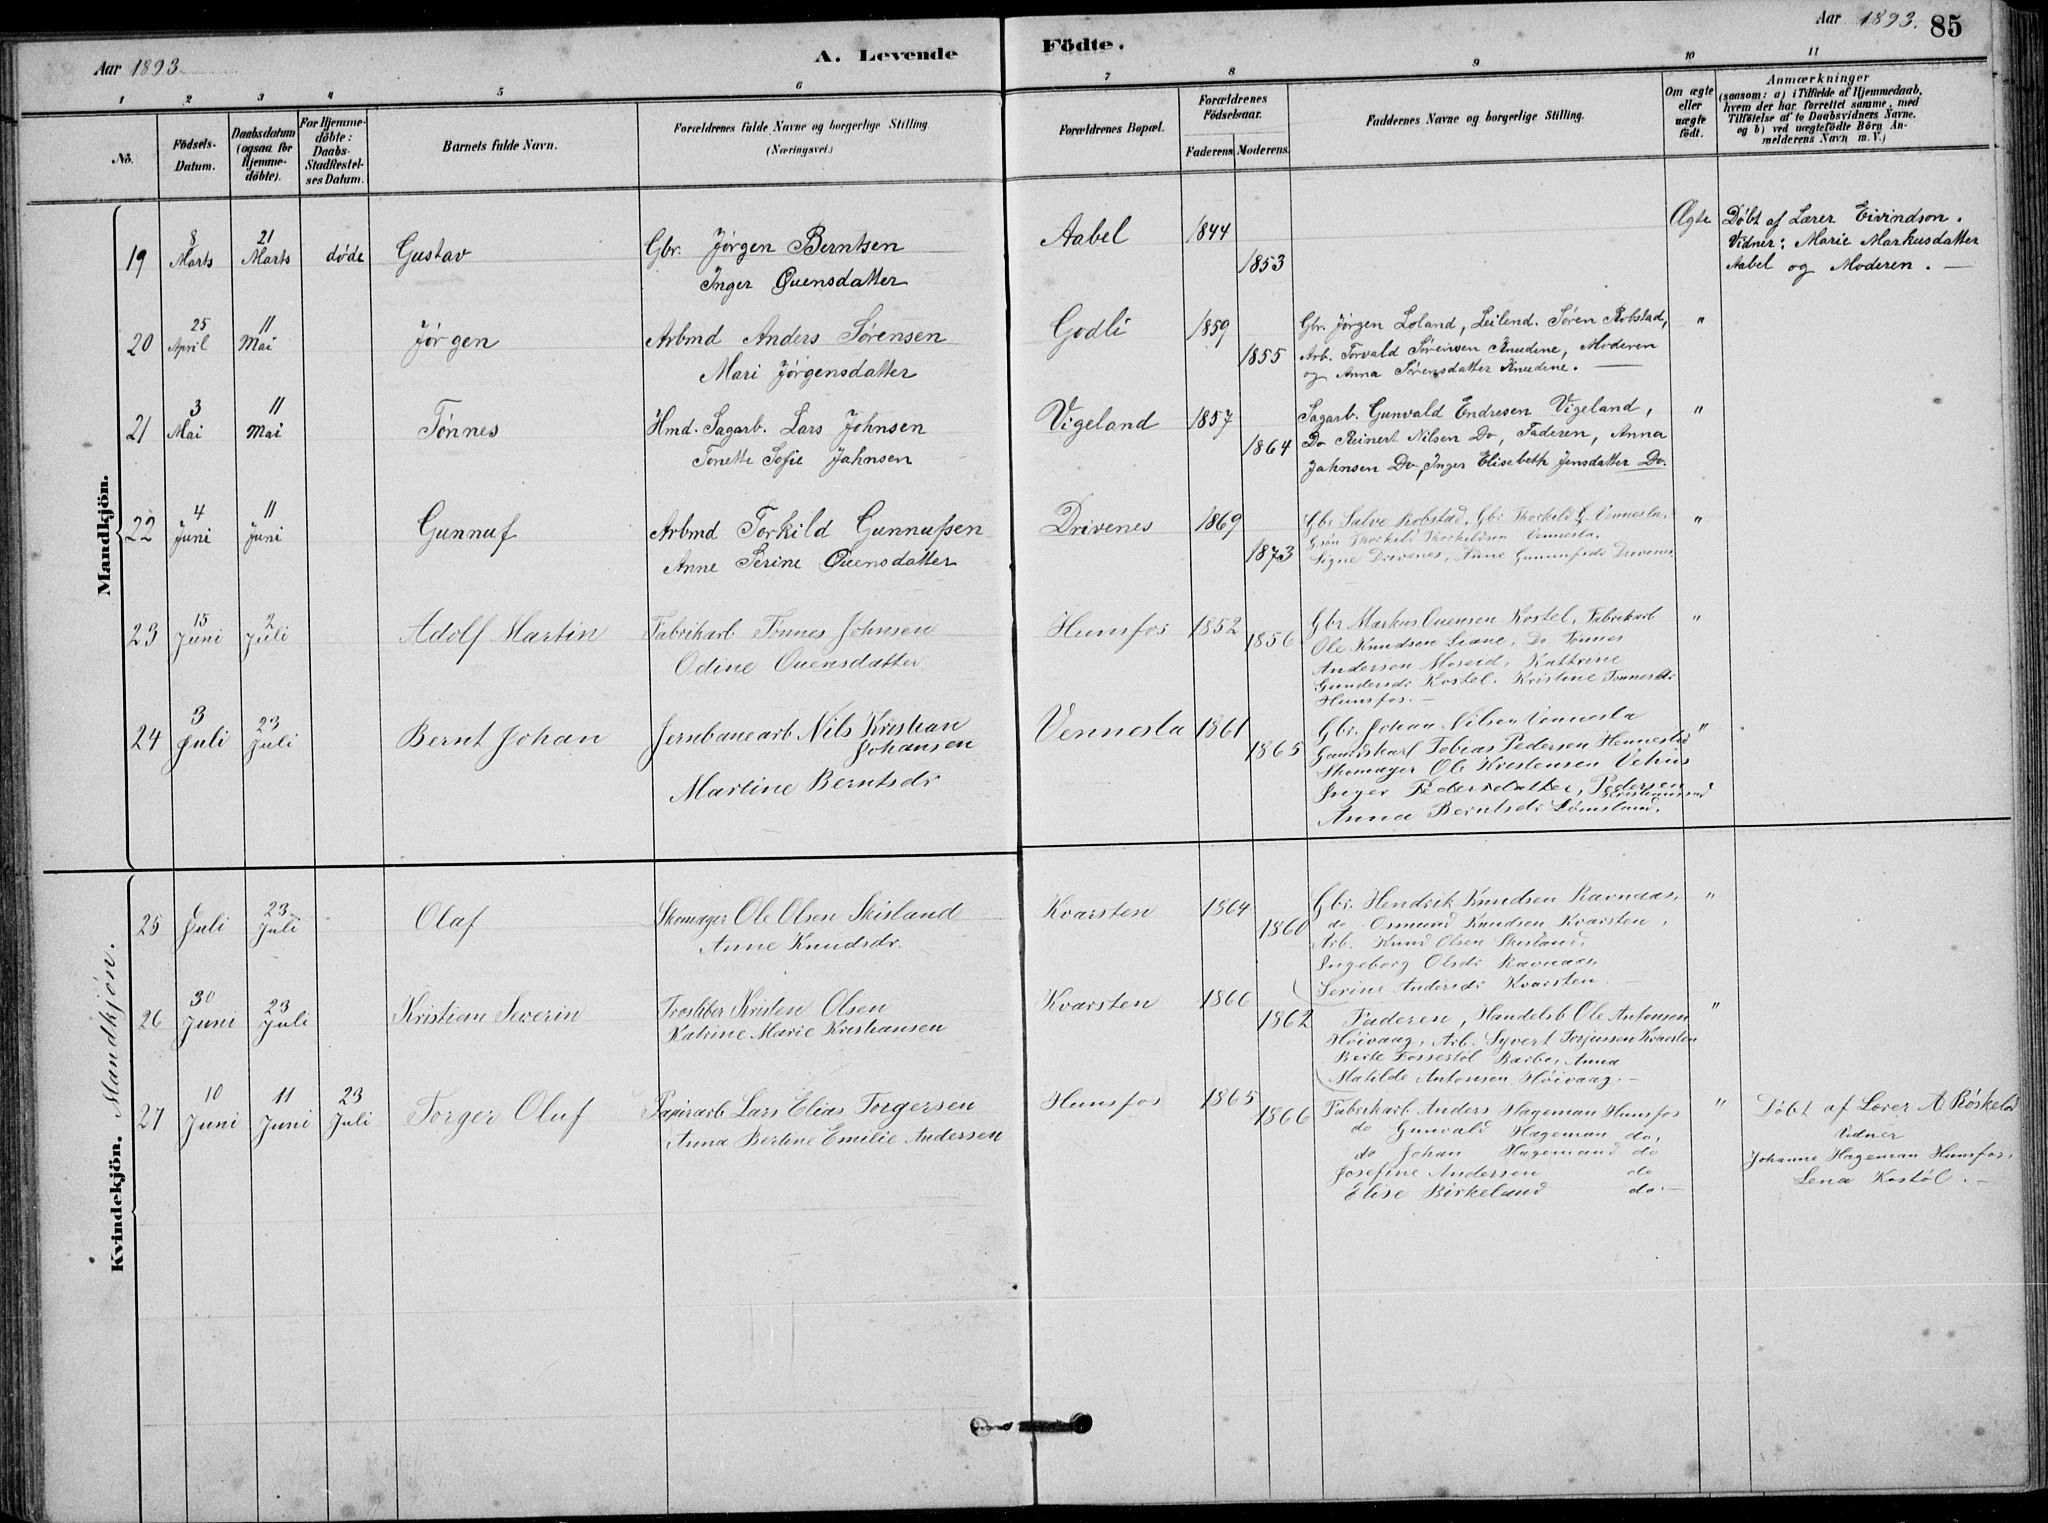 Aar 1893.
A. Levende
Födte.
Aar 1893.
85
1 2 3 4 5 6 7 8 9 10 11
No.
Födsels-
Datum.
Daabsdatum
(ogsaa for
Hjemme-
döbte).
For Hjemme-
döbte:
Daabs-
Stadfæstel-
ses Datum.
Barnets fulde Navn.
Forældrenes fulde Navne og borgerlige Stilling.
(Næringsvei.)
Forældrenes Bopæl.
Forældrenes
Födselsaar.
Faderens. Moderens.
Faddernes Navne og borgerlige Stilling.
Om ægte
eller
uægte
födt.
Anmærkninger
(saasom: a) i Tilfælde af Hjemmedaab,
hvem der har forrettet samme, med
Tilföielse af to Daabsvidners Navne,
og b) ved uægtefödte Börn An-
melderens Navn m. V.)
Mandkjön.
19
8
Marts
21
Marts
døde
Gustav
Gbr. Jørgen Berntsen
Inger Ouensdatter
Aabel
1844
1853
Ægte
Døbt af Lærer Eivindson.
Vidner: Marie Markusdatter
Aabel og Moderen. —
20
25
April
11
Mai
Jørgen
Arbmd Anders Sørensen
Mari Jørgensdatter
Godli
1859
1855
Gbr. Jørgen Loland, Leilend. Søren Robstad,
Arb. Torvald Sørensen Knudene, Moderen
og Anna Sørensdatter Knudene. —
"
21
3
Mai
11
Mai
Tønnes
Hmd. Sagarb. Lars Johnsen
Tonette Sofie Jahnsen
Vigeland
1857
1864
Sagarb. Gunvald Endresen Vigeland,
Do Reinert Nilsen Do, Faderen, Anna
Jahnsen Do, Inger Elisebeth Jensdatter Do.
"
22
4
Juni
11
Juni
Gunnuf
Arbmd Torkild Gunnufsen
Anne Serine Ouensdatter
Drivenes
1869
1873
Gbr Salve Robstad, Gbr Thorkild G. Vennesla,
Gsøn Thorkild Thorkildsen Vennesla,
Signe Drivenes, Anne Gunnufsdr Drivenes
"
23
15
Juni
2
Juli
Adolf Martin
Fabrikarb Tønnes Johnsen
Odine Ouensdatter
Hunsfos
1852
1856
Gbr Markus Ouensen Kostel, Fabrikarb
Ole Knudsen Liane, Do Tønnes
Andersen Moseid, Kathrine
Gundersdr Kostel, Kristine Tønnesdr
Hunsfos. —
"
24
3
Juli
23
Juli
Bernt Johan
Jernbanearb Nils Kristian
Johansen
Martine Berntsdr
Vennesla
1861
1865
Gbr. Johan Nilsen Vennesla
Gaardskarl Tobias Pedersen Hennestad
Skomager Ole Kristensen Vehus
Inger Pedersdatter, Pedersen
Kristianssand
Anna Berntsdr Lømsland.
"
Kvindekjön. Mandkjøn.
25
6
Juli
23
Juli
Olaf
Skomager Ole Olsen Skisland
Anne Knudsdr.
Kvarsten
1864
1860
Gbr. Hendrik Knudsen Ravnaas,
do Osmund Knudsen Kvarsten,
Arb. Knud Olsen Skisland,
Ingeborg Olsdr Ravnaas
Serine Andersdr Kvarsten
"
26
30
Juni
23
Juli
Kristian Severin
Kristen Olsen
Katrine Marie Kristiansen
Kvarsten
1866
1862
Faderen, Handelsb Ole Antonsen
Høivaag, Arb. Syvert Torjussen Kvarsten
Berte Fossestøl Barbo, Anna
Matilde Antonsen Høivaag. —
"
27
10
Juni
11
Juni
23
Juli
Torger Oluf
Papirarb Lars Elias Torgersen
Anna Bertine Emilie Andersen
Hunsfos
1865
1866
Fabrikarb Anders Hageman Hunsfos
do Gunvald Hageman do,
do Johan Hagemand do
Josefine Andersen do
Elise Birkeland do. —
"
Døbt af Lærer A Røskeland
Vidner
Johanne Hageman Hunsfos,
Lena Kostøl. —